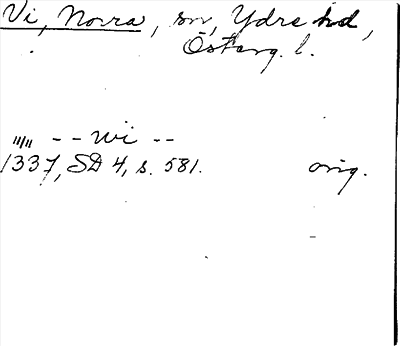 Vi, Norra, sn, Ydre hd,
Österg. l.
"/" -- wi --
1337, SD 4, s. 581. orig.